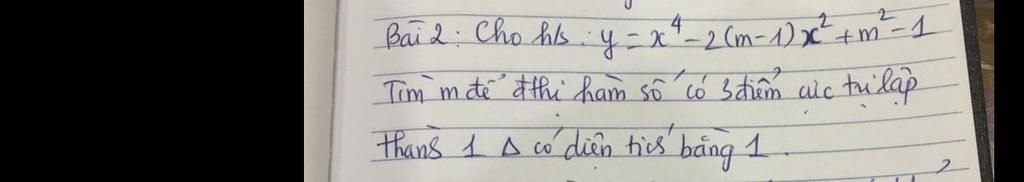 Bài 2: Cho h/s: y = x⁴ - 2(m-1)x² + m² - 1
Tìm m để đthị hàm số có 3 điểm cực trị lập
thành 1 Δ có diện tích bằng 1.